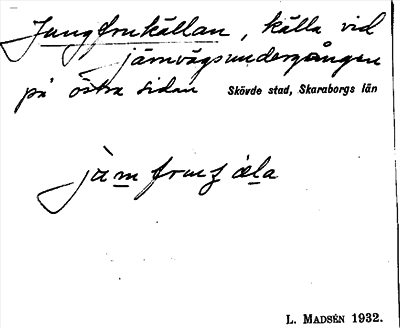 Jungfrukällan, källa vid
järnvägsundergången
på östra sidan Skövde stad, Skaraborgs län
L. MADSÉN 1932.